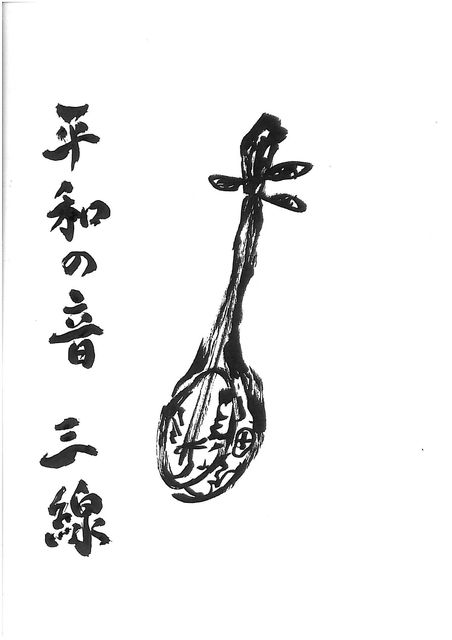 平和の音 三線